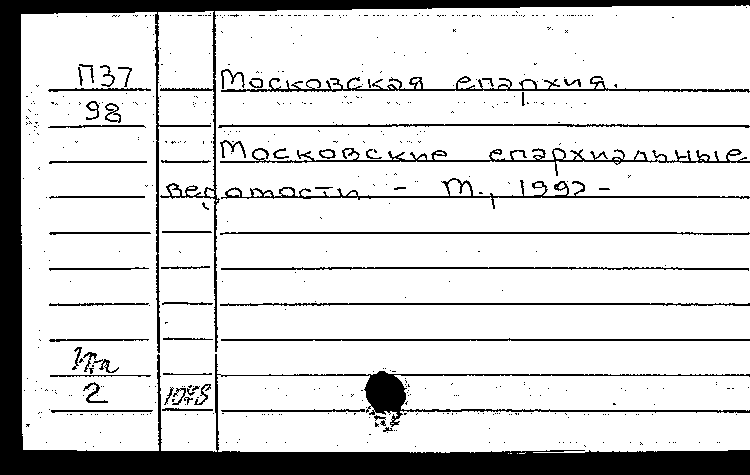 П37 Московская епархия.
98
Московские епархиальные
ведомости. - М., 1992 -
2